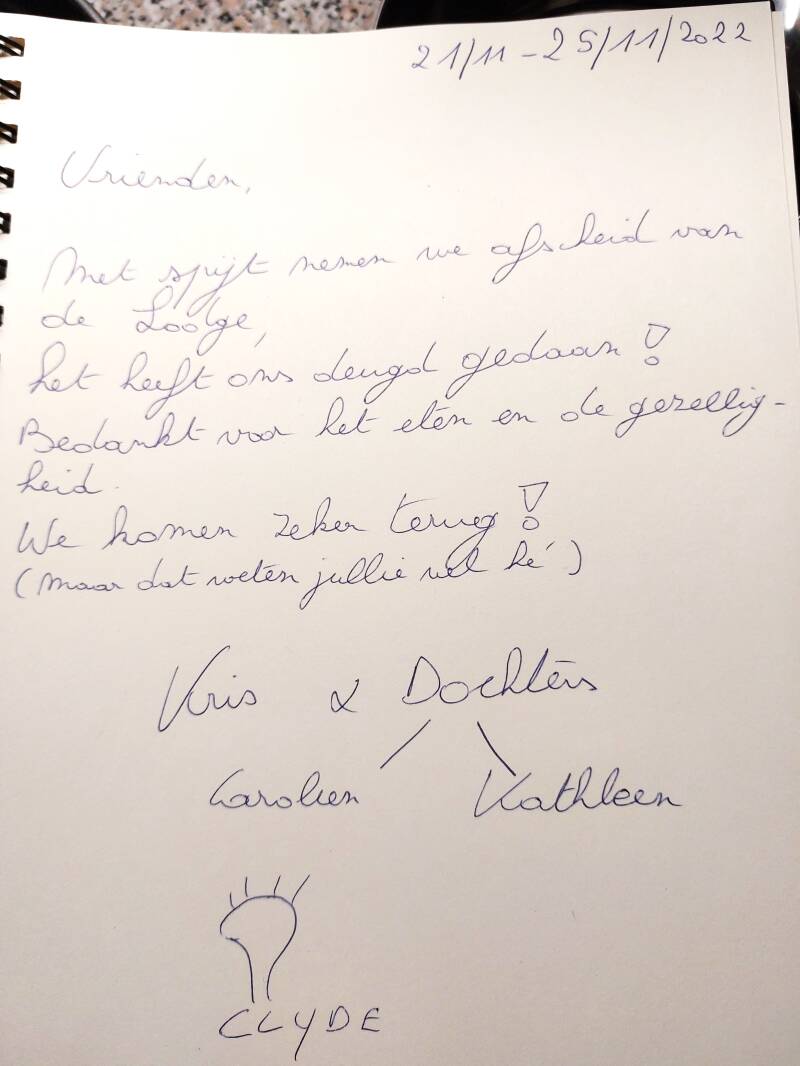 21/11 - 25/11/2022
Vrienden,
Met spijt nemen we afscheid van
de Lodge,
het heeft ons deugd gedaan!
Bedankt voor het eten en de gezellig-
heid.
We komen zeker terug!
(maar dat weten jullie wel hé)
Kris & Dochters
Carolien Kathleen
CLYDE